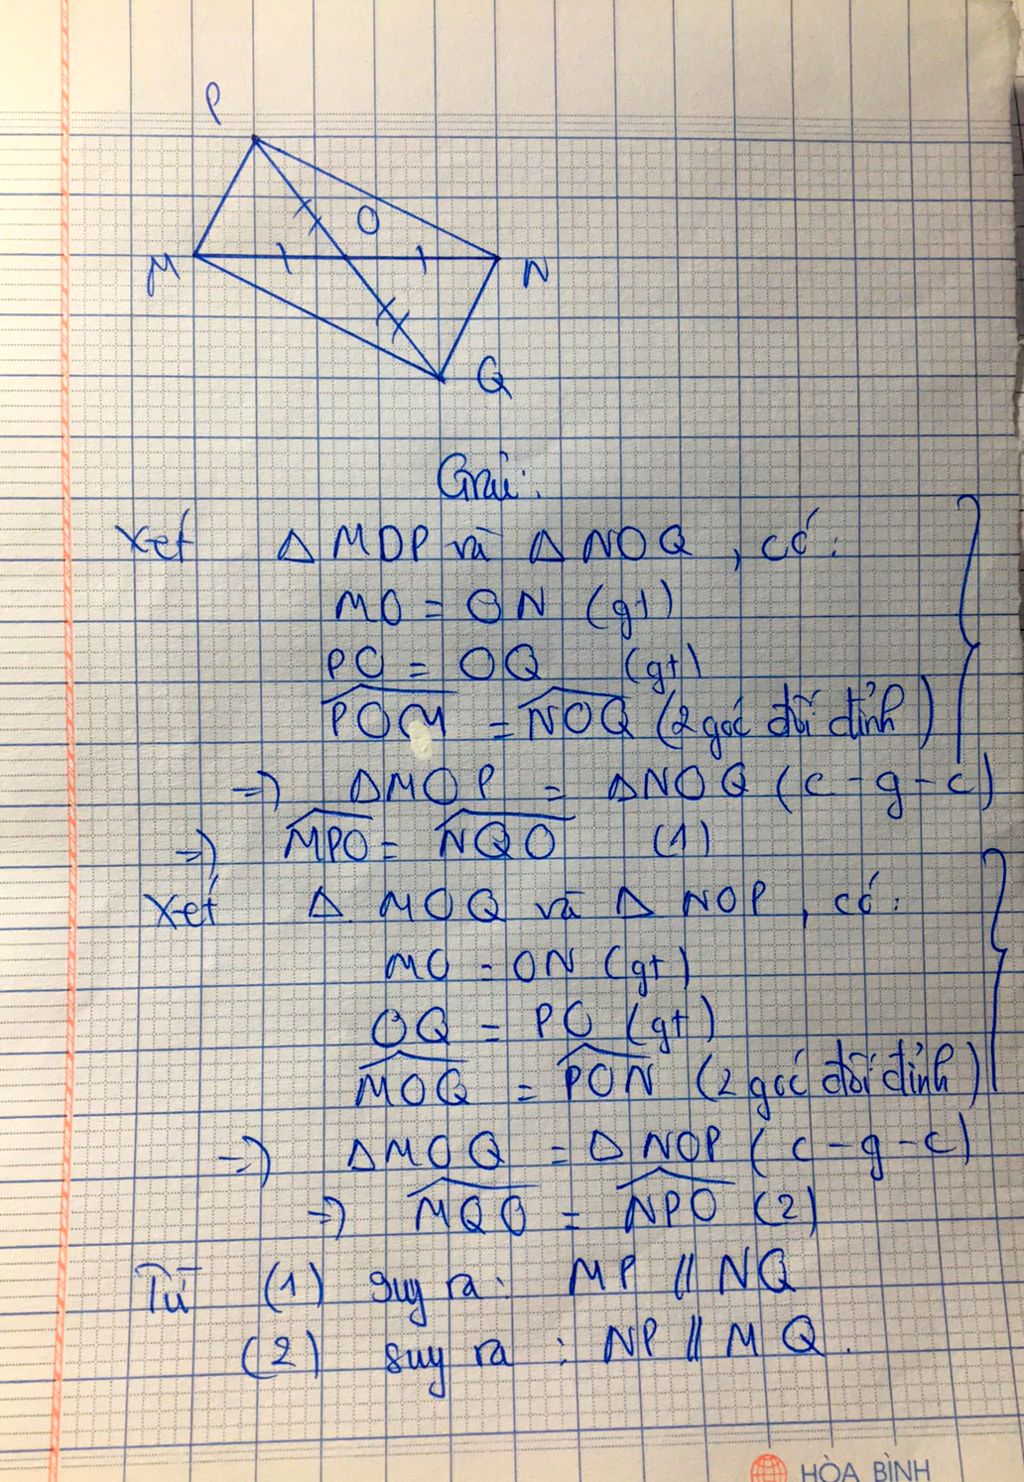 P
O
M
N
Q
Giải:
Xét △ MOP và △ NOQ, có:
MO = ON (gt)
PO = OQ (gt)
$\widehat{POM}$ = $\widehat{NOQ}$ (2 góc đối đỉnh)
=> △MOP = △NOQ (c-g-c)
=> $\widehat{MPO}$ = $\widehat{NQO}$ (1)
Xét △ MOQ và △ NOP, có:
MO = ON (gt)
OQ = PO (gt)
$\widehat{MOQ}$ = $\widehat{PON}$ (2 góc đối đỉnh)
=> △MOQ = △ NOP (c-g-c)
=> $\widehat{MQO}$ = $\widehat{NPO}$ (2)
Từ (1) suy ra: MP // NQ
(2) suy ra: NP // MQ.
HÒA BÌNH